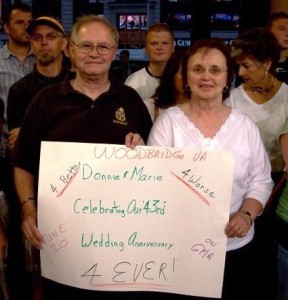 WOODBRIDGE VA
4 Better
Donnie & Marie
4 Worse
Celebrating Our 43rd
JUNE 10
Wedding Anniversary
ON GMA
4 EVER!